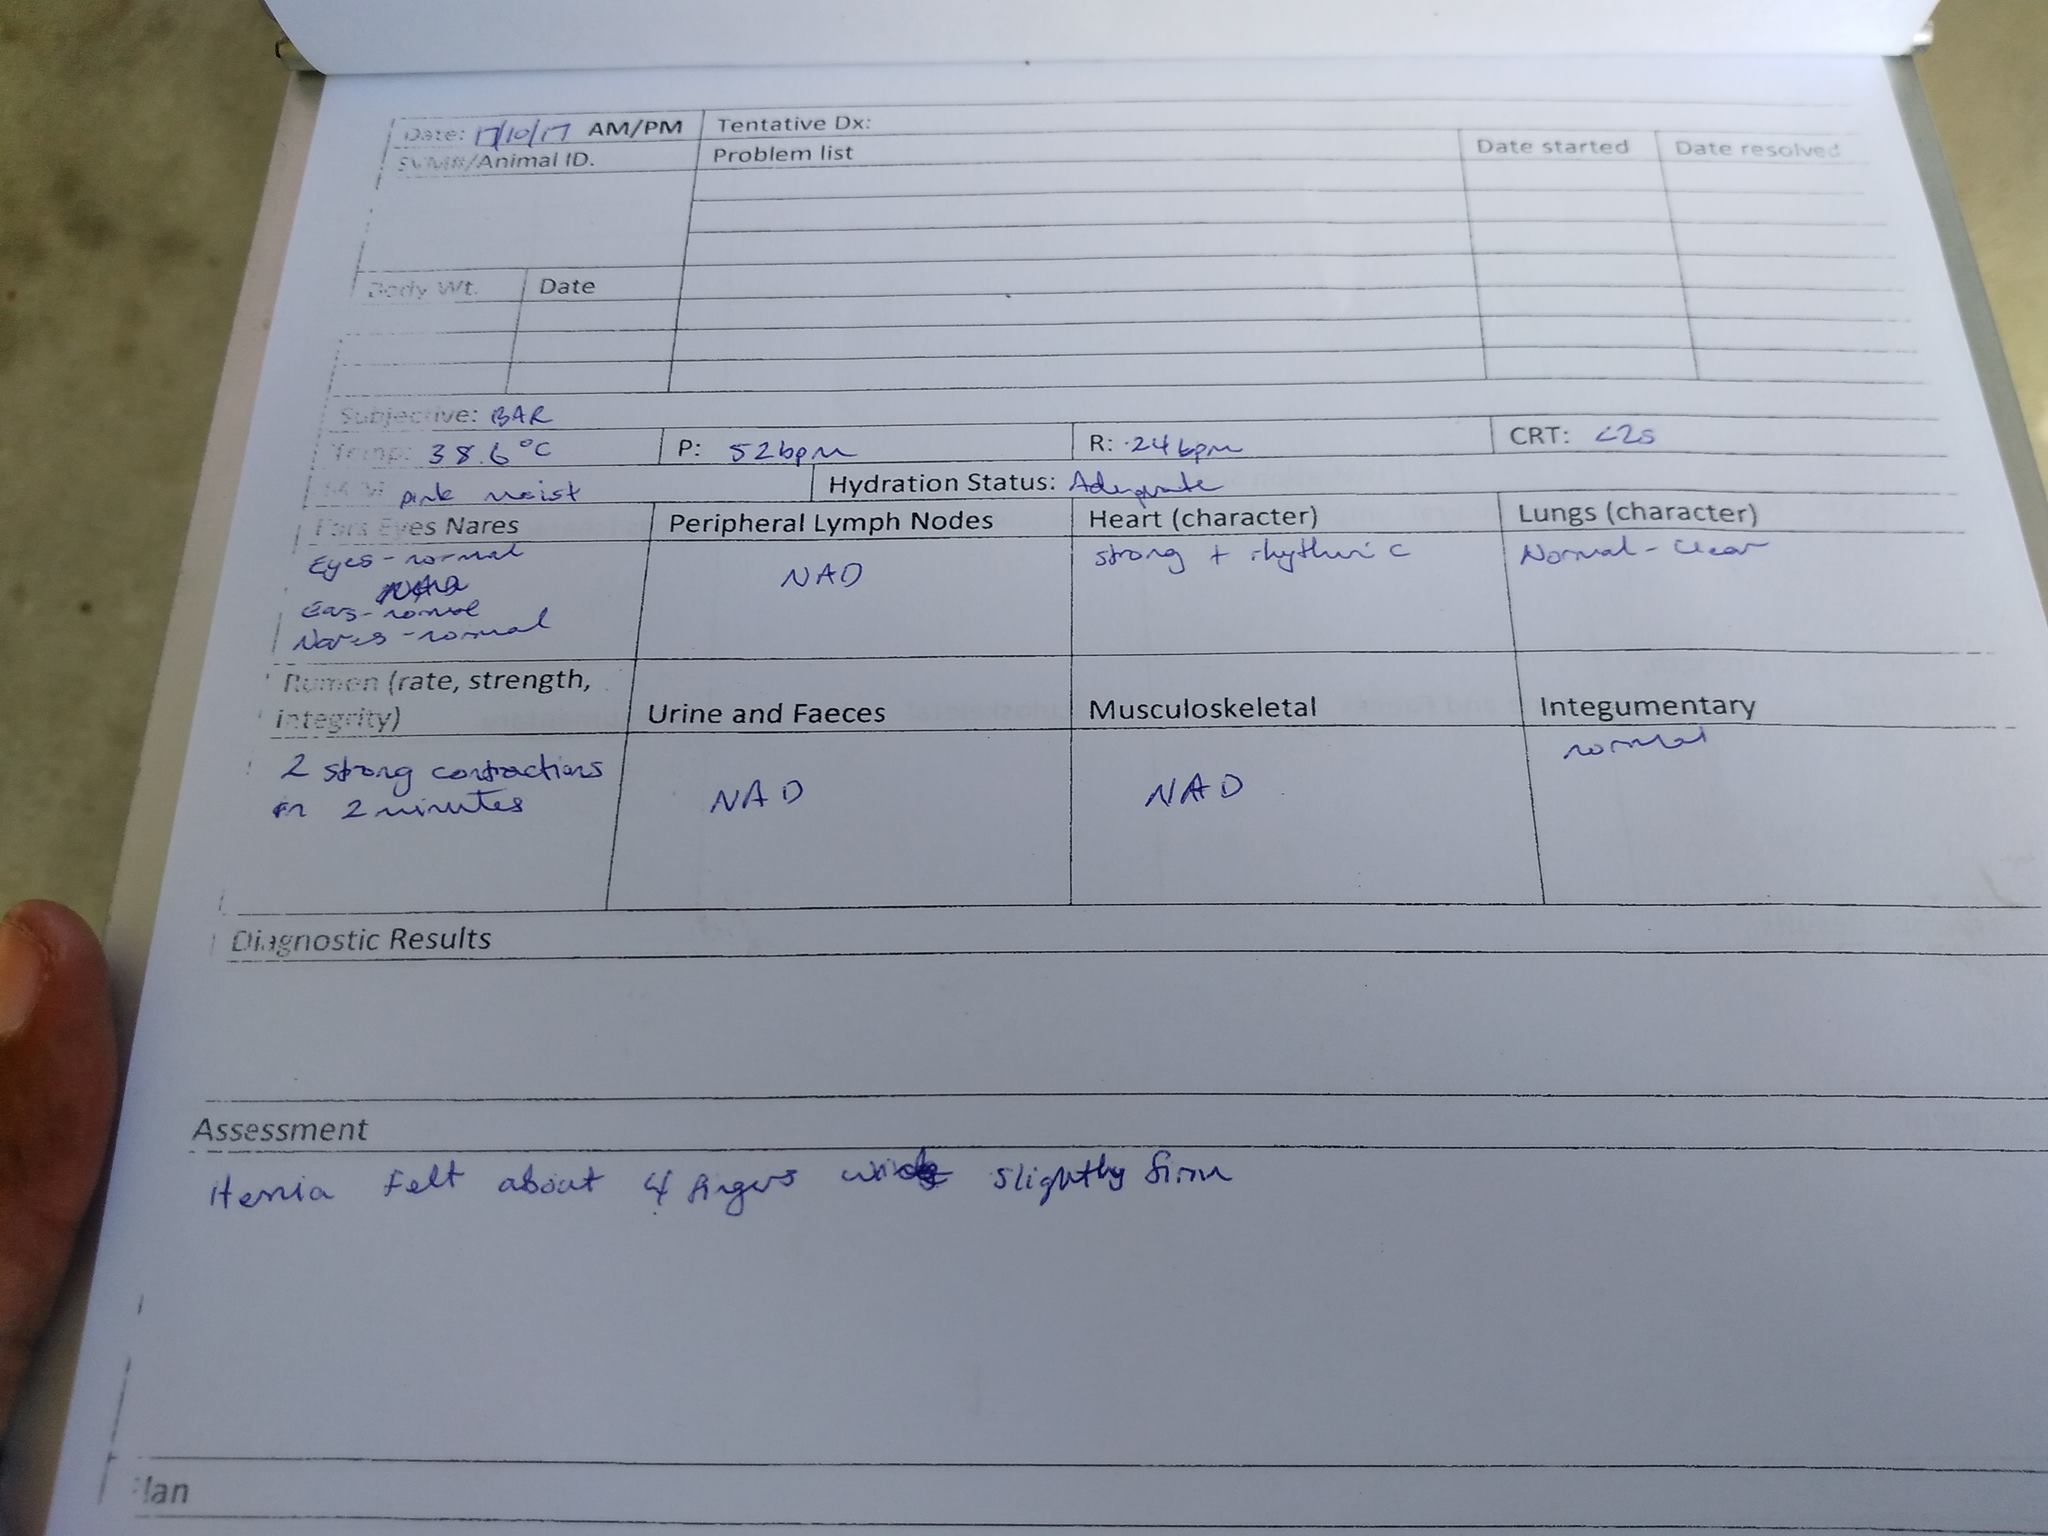 Date: 17/10/17 AM/PM Tentative Dx:
SVM#/Animal ID. Problem list Date started Date resolved
Body Wt. Date
Subjective: BAR
Temp: 38.6°C P: 52bpm R: 24bpm CRT: <2s
M.M pink moist Hydration Status: Adequate
Ears Eyes Nares Peripheral Lymph Nodes Heart (character) Lungs (character)
Eyes - normal NAD strong + rhythmic Normal - clear
Ears - normal
Nares - normal
Rumen (rate, strength,
integrity) Urine and Faeces Musculoskeletal Integumentary
2 strong contractions NAD NAD normal
in 2 minutes
Diagnostic Results
Assessment
Hernia felt about 4 fingers wide slightly firm
Plan